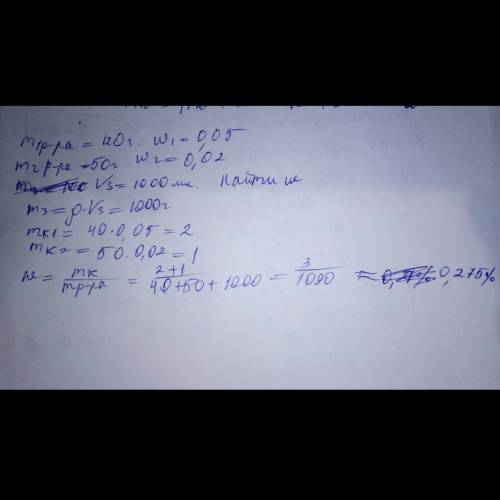 m1р-ра = 40г. w1 = 0,05
m2р-ра = 50г w2 = 0,02
V3 = 1000 мл. Найти w
m3 = ρ·V3 = 1000г
mк1 = 40·0,05 = 2
mк2 = 50·0,02 = 1
w = mк/mр-ра = 2+1/40+50+1000 = 3/1090 = 0,275%